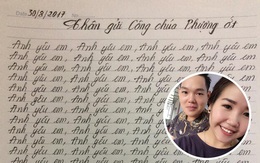 30/8/2017
Thân gửi Công chúa Phượng ớt
Anh yêu em, Anh yêu em, Anh yêu em, Anh yêu em,
Anh yêu em, Anh yêu em, Anh yêu em, Anh yêu em,
Anh yêu em, Anh yêu em, Anh yêu em, Anh yêu em,
Anh yêu em, Anh yêu em, Anh yêu em, Anh yêu em,
Anh yêu em, Anh yêu em, Anh yêu em,
Anh yêu em, Anh yêu em, Anh yêu em,
Anh yêu em, Anh yêu em, Anh yêu em,
Anh yêu em, Anh yêu em, Anh yêu em,
Anh yêu em, Anh yêu em, Anh yêu em,